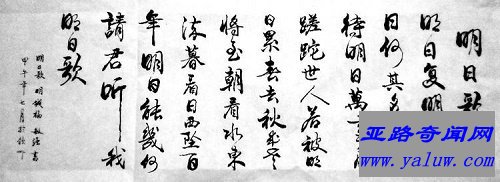 明日歌
明日复明
日何其多
待明日萬事
蹉跎世人若被明
日累春去秋来老
將至朝看水東
流暮看日西墜百
年明日能幾何
請君听我
明日歌
明日歌 明 錢福 書
甲午年七月於
亚路奇闻网
www.yaluw.com